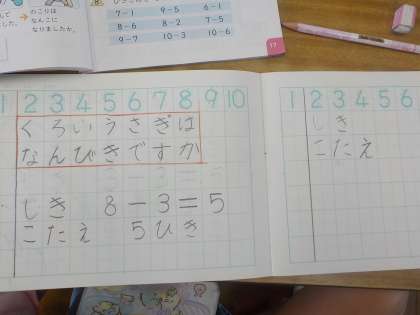 のこりは
なんこに
なりましたか。
7-1 9-5 6-1
8-6 8-2 7-5
9-7 10-3 10-6
17
1 2 3 4 5 6 7 8 9 10
くろいうさぎは
なんびきですか
しき 8-3=5
こたえ 5ひき
1 2 3 4 5 6
しき
こたえ